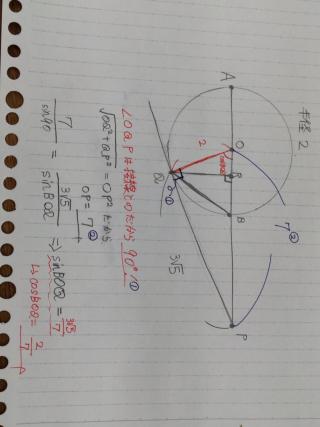 半径 2
A
O
B
P
Q
R
2
7②
3√5
①
∠OQPは接線とのだから 90°①
√OQ²+QP² = OP² だから
OP = 7②
7/sin90 = 3√5/sinBOQ ⇒ sinBOQ = 3√5/7
↳ cosBOQ = 2/7